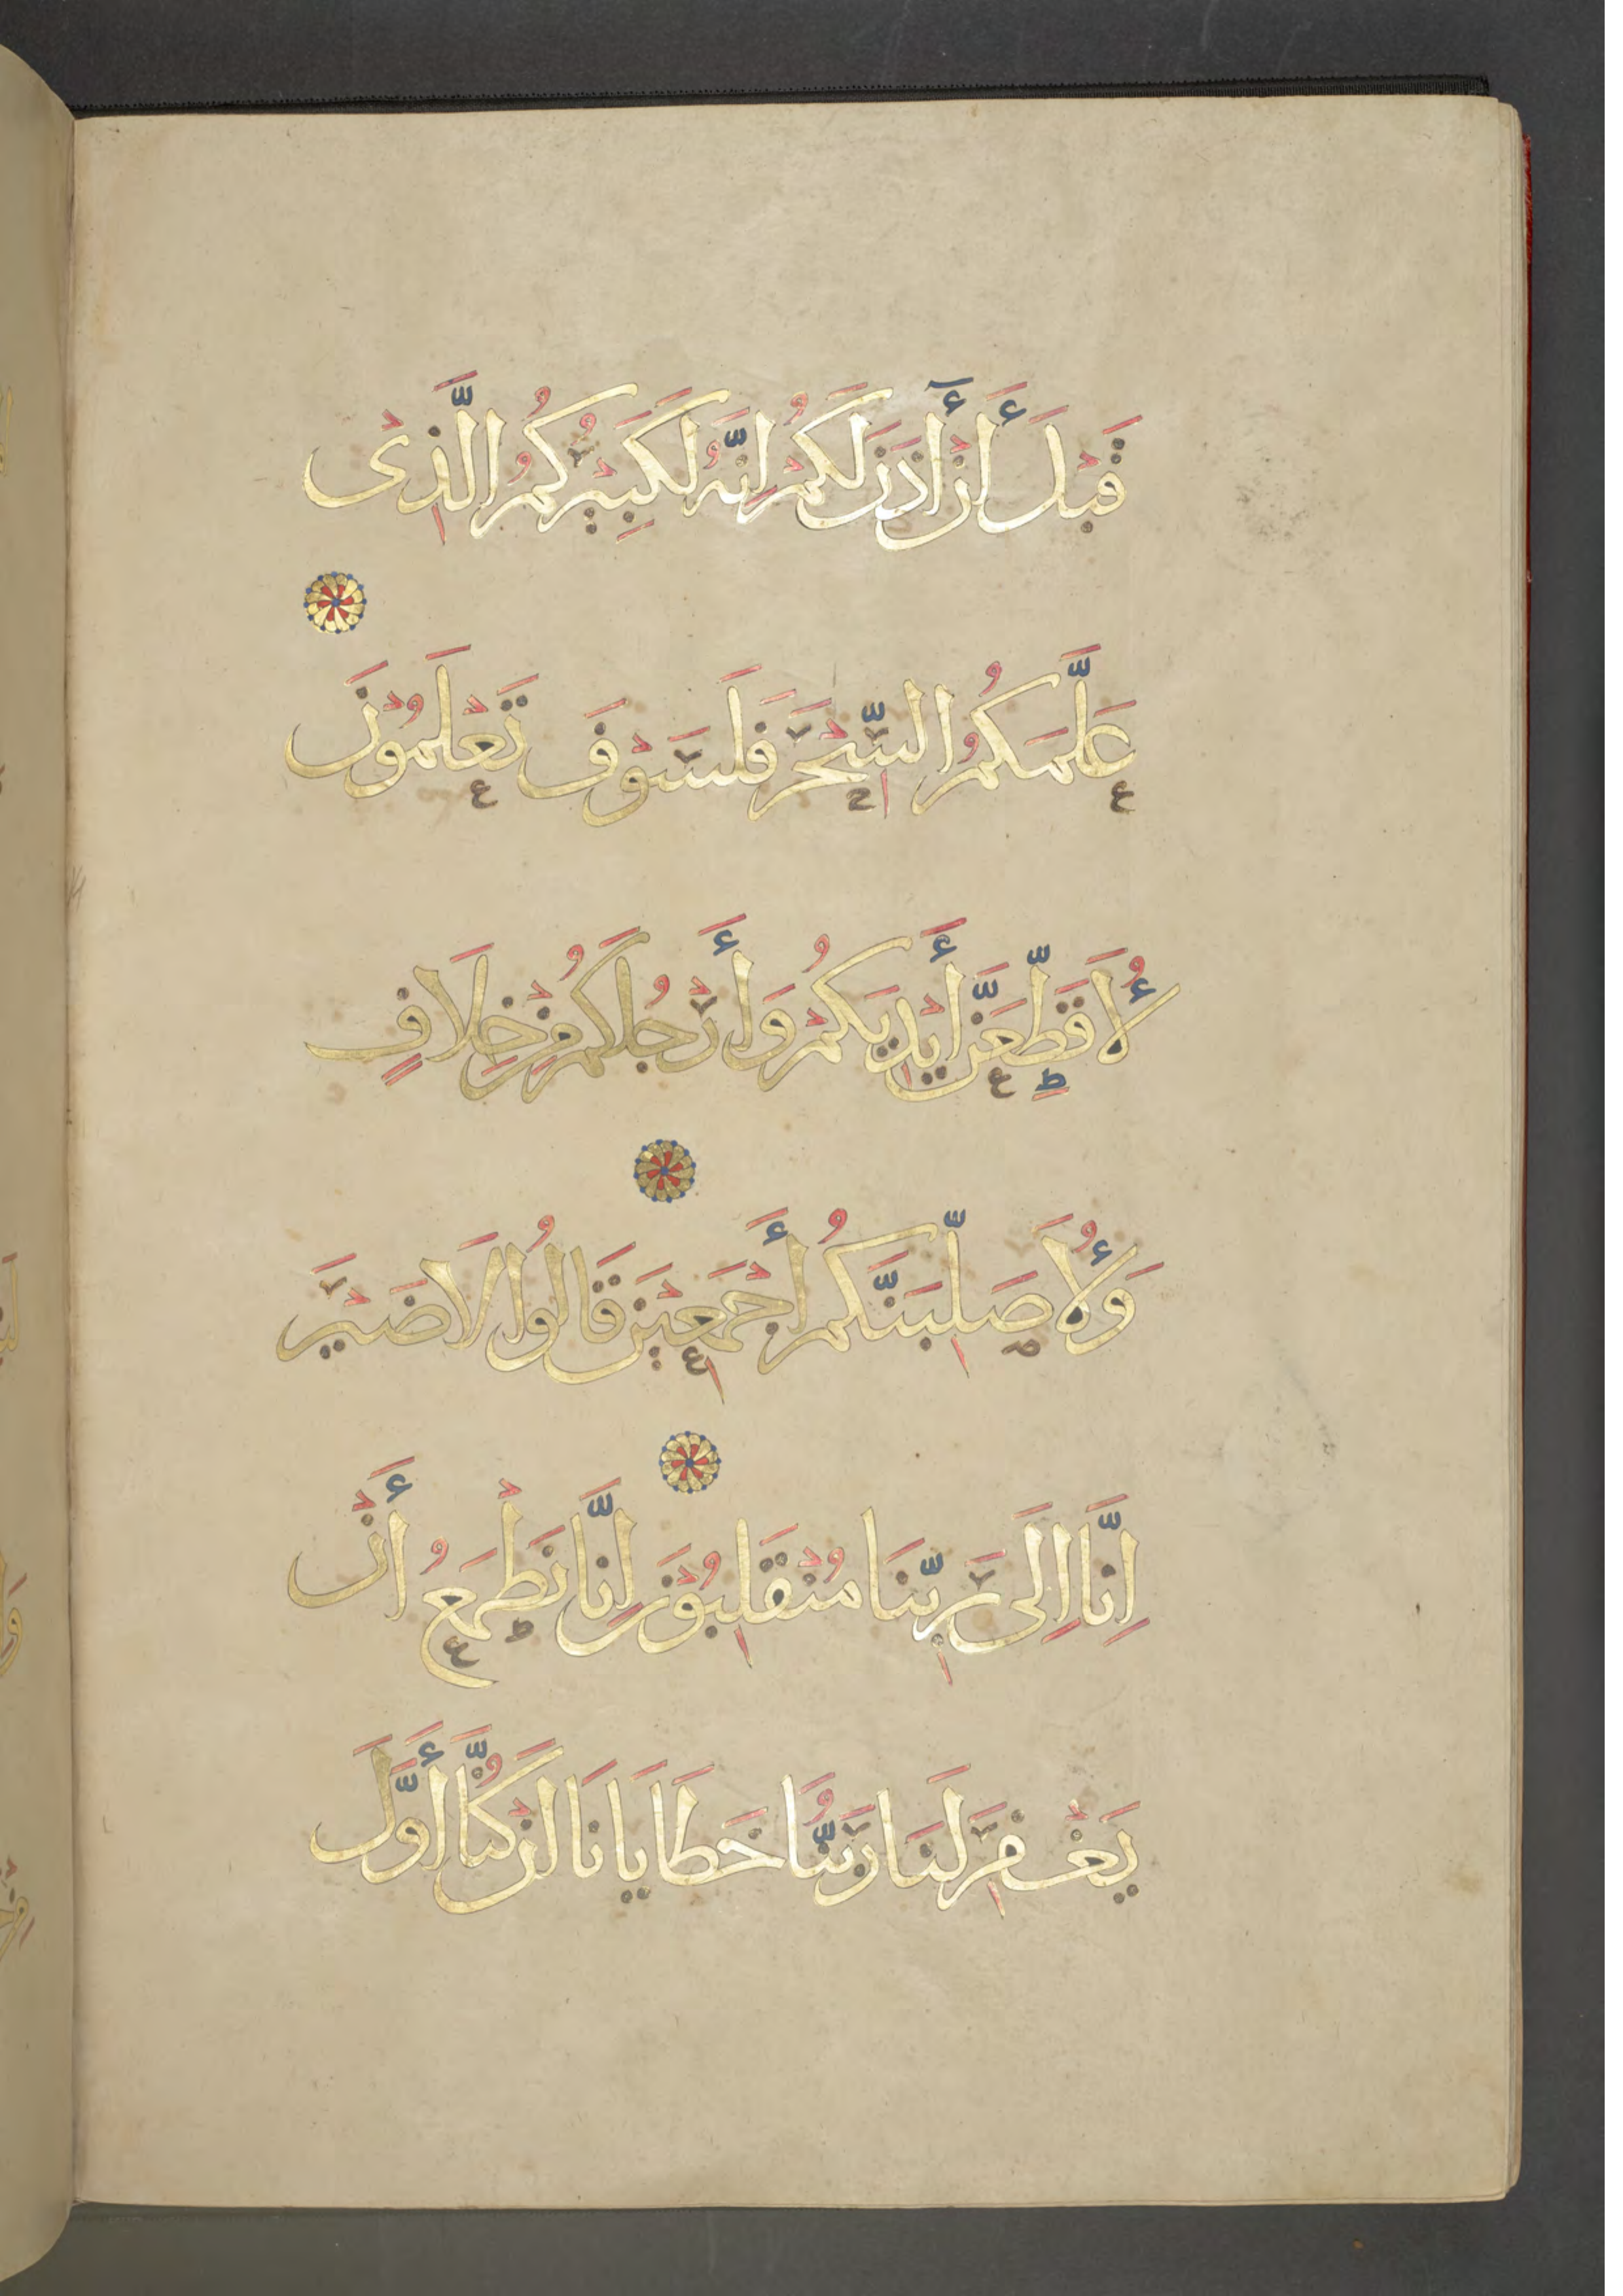 قَبْلَ أَنْ أَٓذَنَ لَكُمْ اِنَّهُ لَكَبِيْرُكُمُ الَّذِىْ
عَلَّمَكُمُ السِّحْرَ فَلَسَوْفَ تَعْلَمُوْنَ
لَأُقَطِّعَنَّ أَيْدِيَكُمْ وَأَرْجُلَكُمْ مِنْ خِلَافٍ
وَلَأُصَلِّبَنَّكُمْ أَجْمَعِيْنَ قَالُوا لَا ضَيْرَ
اِنَّا اِلَى رَبِّنَا مُنْقَلِبُوْنَ اِنَّا نَطْمَعُ أَنْ
يَغْفِرَ لَنَا رَبُّنَا خَطَايَانَا اَنْ كُنَّا أَوَّلَ